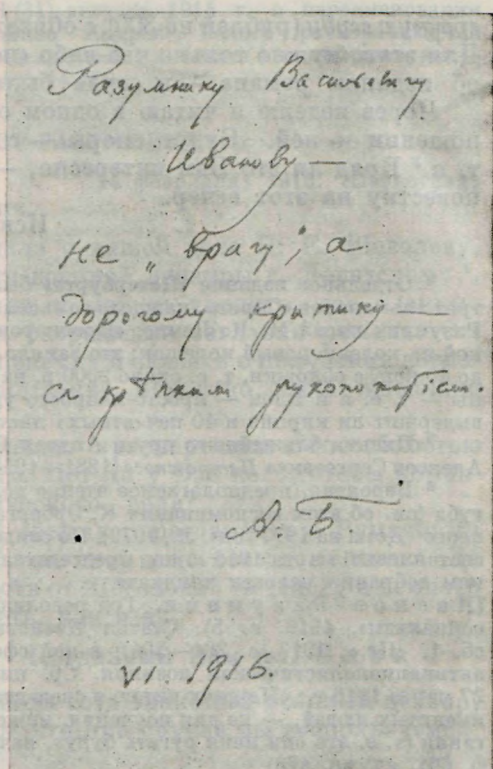 Разумнику Васильевичу
Иванову —
не „врагу“, а
дорогому критику —
съ крѣпкимъ рукопожатіемъ.
А. Б.
VI 1916.